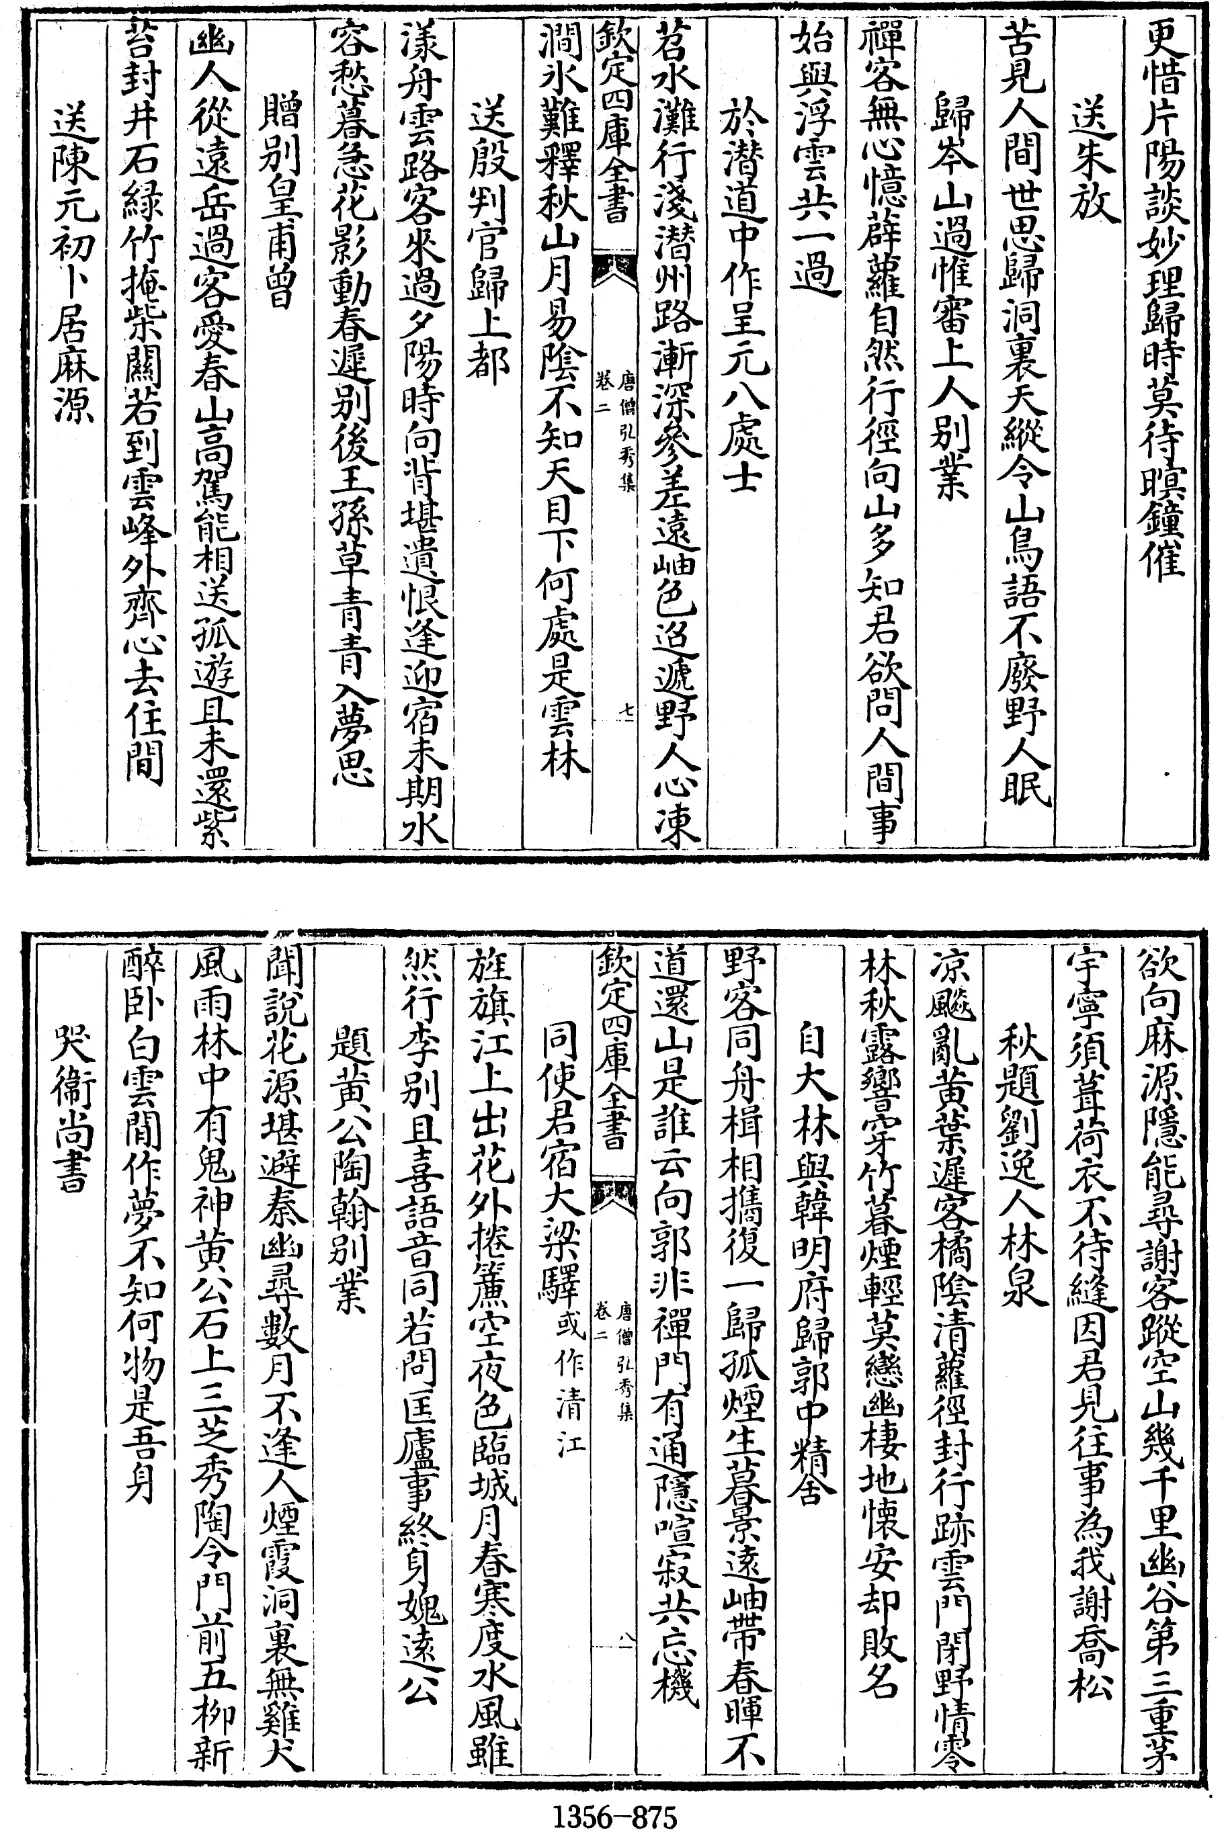 更惜片陽談妙理歸時莫待暝鐘催
送朱放
苦見人間世思歸洞裏天縱令山鳥語不廢野人眠
歸岑山過惟審上人别業
禪客無心憶薜蘿自然行徑向山多知君欲問人間事
始與浮雲共一過
於潛道中作呈元八處士
苕水灘行淺潛州路漸深參差遠岫色迢遞野人心凍
欽定四庫全書
唐僧弘秀集
卷二
七
澗氷難釋秋山月易陰不知天目下何處是雲林
送殷判官歸上都
漾舟雲路客來過夕陽時向背堪遺恨逢迎宿未期水
容愁暮急花影動春遲别後王孫草青青入夢思
贈别皇甫曾
幽人從遠岳過客愛春山高駕能相送孤遊且未還紫
苔封井石緑竹掩柴關若到雲峰外齊心去住間
送陳元初卜居麻源
欲向麻源隱能尋謝客蹤空山幾千里幽谷第三重茅
宇寧須葺荷衣不待縫因君見往事為我謝喬松
秋題劉逸人林泉
凉飈亂黄葉遲客橘陰清蘿徑封行跡雲門閉野情零
林秋露響穿竹暮煙輕莫戀幽棲地懷安却敗名
自大林與韓明府歸郭中精舍
野客同舟楫相攜復一歸孤煙生暮景遠岫帶春暉不
道還山是誰云向郭非禪門有通隱喧寂共忘機
欽定四庫全書
唐僧弘秀集
卷二
八
同使君宿大梁驛或作清江
旌旗江上出花外捲簾空夜色臨城月春寒度水風雖
然行李别且喜語音同若問匡廬事終身媿遠公
題黄公陶翰别業
聞說花源堪避秦幽尋數月不逢人煙霞洞裏無雞犬
風雨林中有鬼神黄公石上三芝秀陶令門前五柳新
醉卧白雲閒作夢不知何物是吾身
哭衞尚書
1356-875